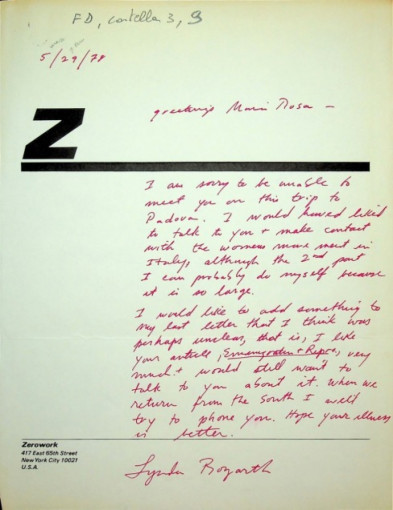 FD, cartella 3, 9
5/29/78
Z
greetings Maria Rosa —
I am sorry to be unable to
meet you on this trip to
Padova. I would have liked
to talk to you + make contact
with the womens movement in
Italy, although the 2nd part
I can probably do myself because
it is so large.
I would like to add something to
my last letter that I think was
perhaps unclear, that is, I like
your article, Emigration + Repro, very
much + would still want to
talk to you about it. When we
return from the South I will
try to phone you. Hope your illness
is better.
Zerowork
417 East 65th Street
New York City 10021
U.S.A.
Lynda